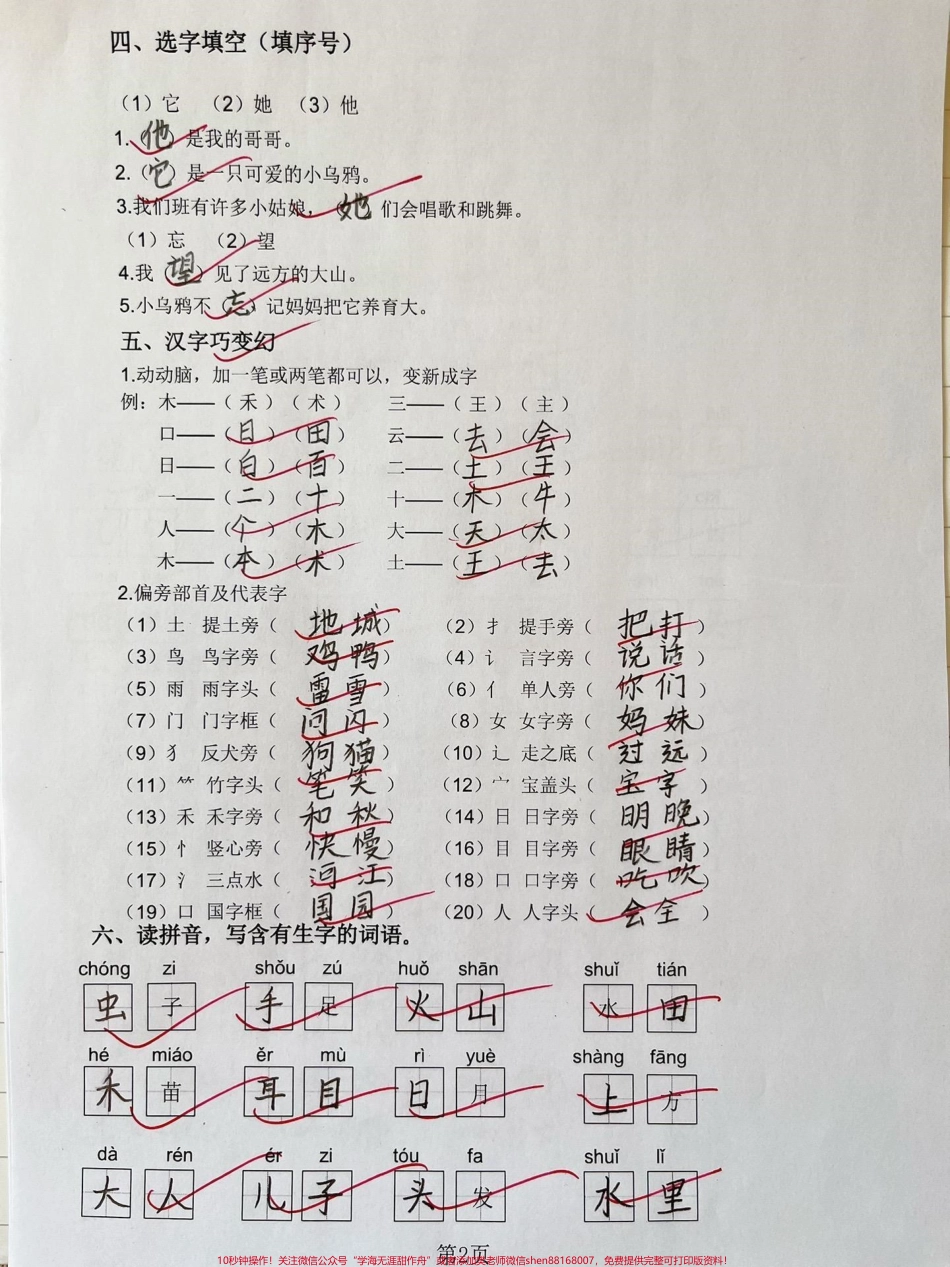 四、选字填空（填序号）
（1）它 （2）她 （3）他
1.（他）是我的哥哥。
2.（它）是一只可爱的小乌鸦。
3.我们班有许多小姑娘，（她）们会唱歌和跳舞。
（1）忘 （2）望
4.我（望）见了远方的大山。
5.小乌鸦不（忘）记妈妈把它养育大。
五、汉字巧变幻
1.动动脑，加一笔或两笔都可以，变新成字
例：木——（禾）（术） 三——（王）（主）
口——（日）（田） 云——（去）（会）
日——（白）（百） 二——（土）（王）
一——（二）（十） 十——（木）（牛）
人——（个）（木） 大——（天）（太）
木——（本）（术） 土——（王）（去）
2.偏旁部首及代表字
（1）土 提土旁（ 地 城） （2）扌 提手旁（ 把 打 ）
（3）鸟 鸟字旁（ 鸡 鸭） （4）讠 言字旁（ 说 话 ）
（5）雨 雨字头（ 雷 雪 ） （6）亻 单人旁（ 你 们 ）
（7）门 门字框（ 问 闪 ） （8）女 女字旁（ 妈 妹 ）
（9）犭 反犬旁（ 狗 猫 ） （10）辶 走之底（ 过 远 ）
（11）⺮ 竹字头（ 笔 笑 ） （12）宀 宝盖头（ 宝 字 ）
（13）禾 禾字旁（ 和 秋 ） （14）日 日字旁（ 明 晚 ）
（15）忄 竖心旁（ 快 慢 ） （16）目 目字旁（ 眼 睛 ）
（17）氵 三点水（ 河 江 ） （18）口 口字旁（ 吃 吹 ）
（19）口 国字框（ 国 园 ） （20）人 人字头（ 会 全 ）
六、读拼音，写含有生字的词语。
chóng zi shǒu zú huǒ shān shuǐ tián
虫 子 手 足 火 山 水 田
hé miáo ěr mù rì yuè shàng fāng
禾 苗 耳 目 日 月 上 方
dà rén ér zi tóu fa shuǐ lǐ
大 人 儿 子 头 发 水 里
第2页
10秒钟操作！关注微信公众号“学海无涯甜作舟”或者添加吴老师微信shen88168007，免费提供完整可打印版资料！